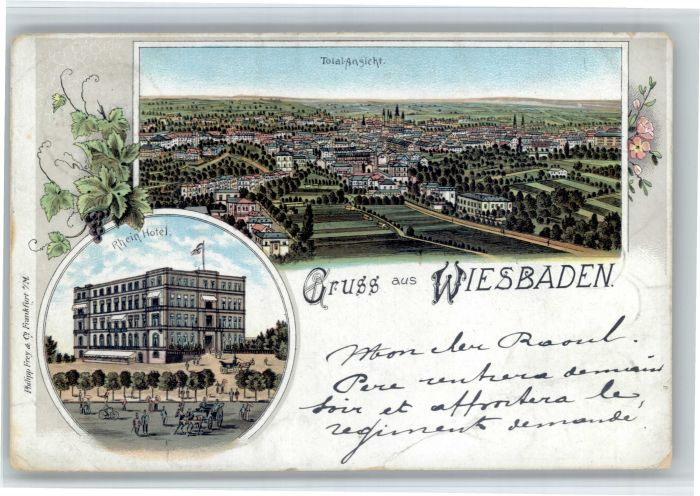 Total-Ansicht.
Rhein Hotel.
Gruss aus WIESBADEN.
Philipp Frey & Co Frankfurt a/M.
Mon cher Raoul.
Pere rentrera demain
soir et apportera le
regiment demandé.